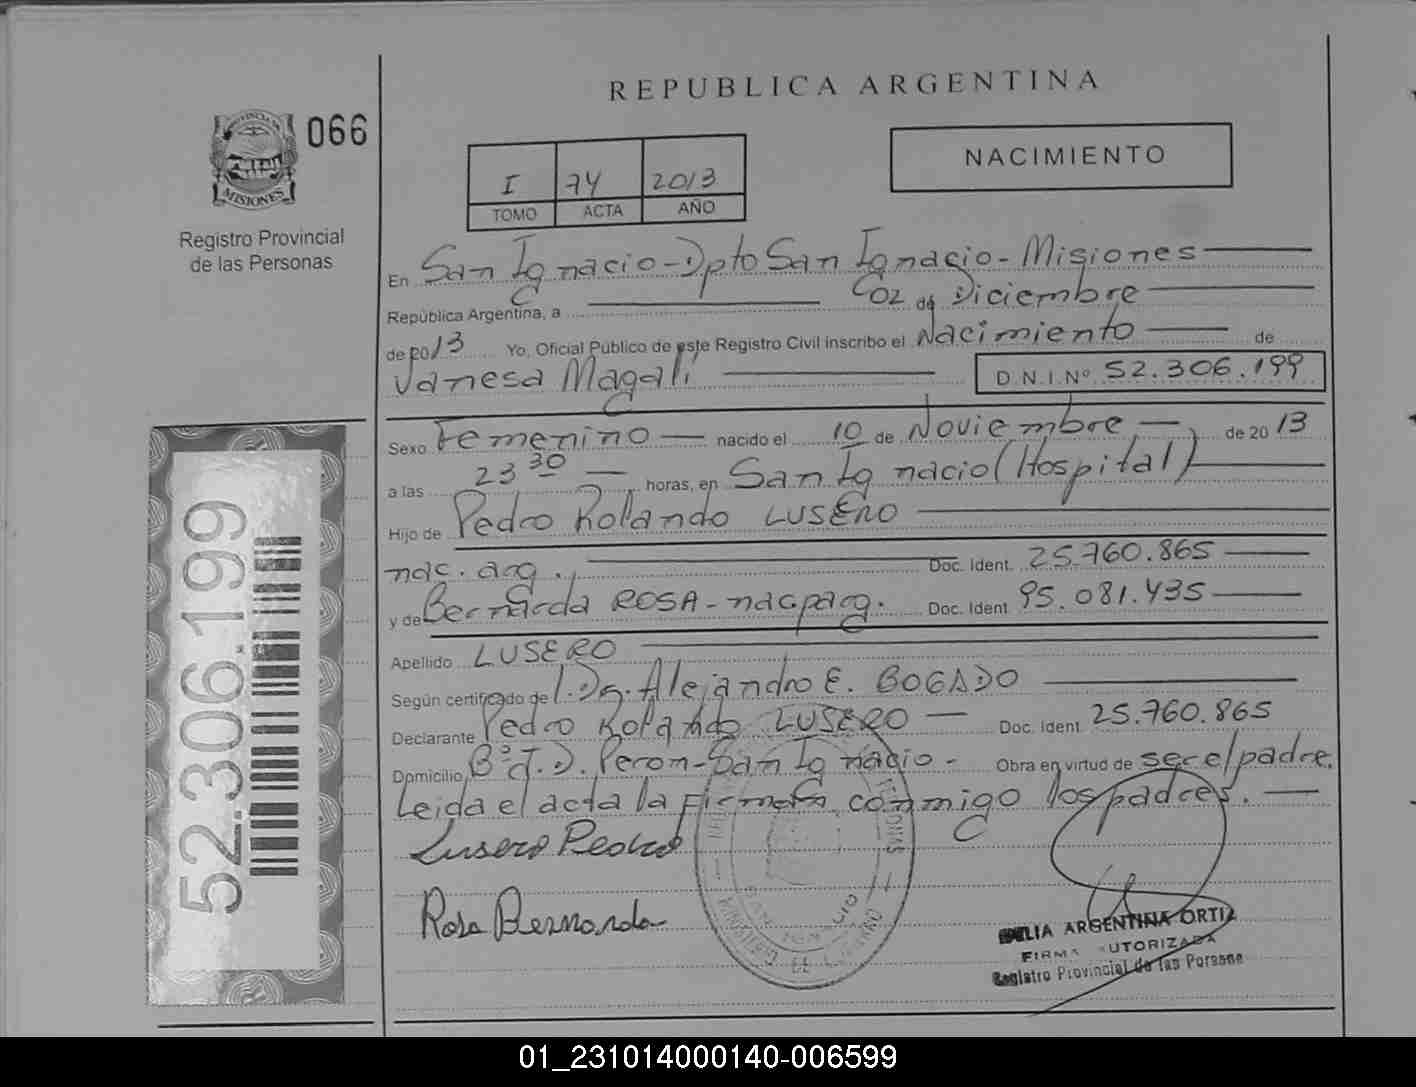 REPUBLICA ARGENTINA
PROVINCIA DE
MISIONES
066
Registro Provincial
de las Personas
I 74 2013
TOMO ACTA AÑO
NACIMIENTO
En San Ignacio - Dpto San Ignacio - Misiones
República Argentina, a 02 de Diciembre
de 2013 Yo, Oficial Público de este Registro Civil inscribo el Nacimiento de
Vanesa Magalí D.N.I.Nº 52.306.199
Sexo Femenino nacido el 10 de Noviembre de 2013
a las 23 30 horas, en San Ignacio (Hospital)
Hijo de Pedro Rolando LUSERO
nac. arg. Doc. Ident. 25.760.865
y de Bernarda ROSA - nac parg. Doc. Ident 95.081.435
Apellido LUSERO
Según certificado del Dr. Alejandro E. BOGADO
Declarante Pedro Rolando LUSERO Doc. Ident 25.760.865
Domicilio Bº J.D. Peron - San Ignacio - Obra en virtud de ser el padre.
Leida el acta la firman conmigo los padres.
Lusero Pedro
Rosa Bernarda
ARGENTINA ORTIZ
FIRMA AUTORIZADA
Registro Provincial de las Persone
52.306.199
01_231014000140-006599